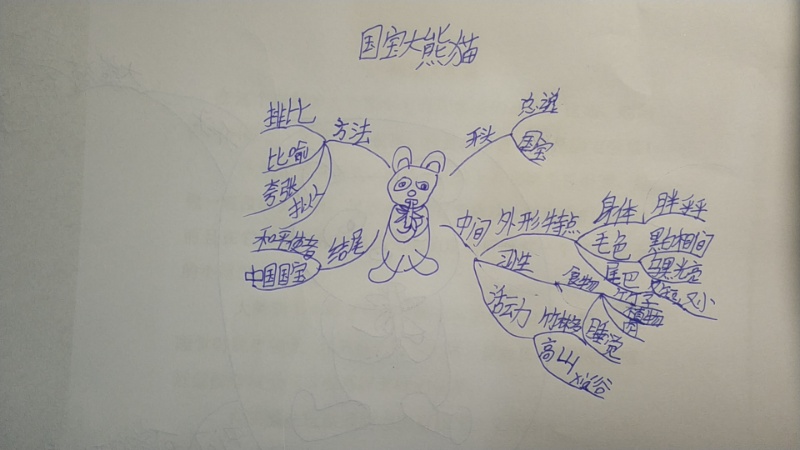 国宝大熊猫
总说
国宝
中间
外形特点
身体
胖乎乎
毛色
黑白相间
尾巴
又小
习性
食物
植物
肉
睡觉
活动
竹林
高山
谷
结尾
和平使者
中国国宝
方法
排比
比喻
夸张